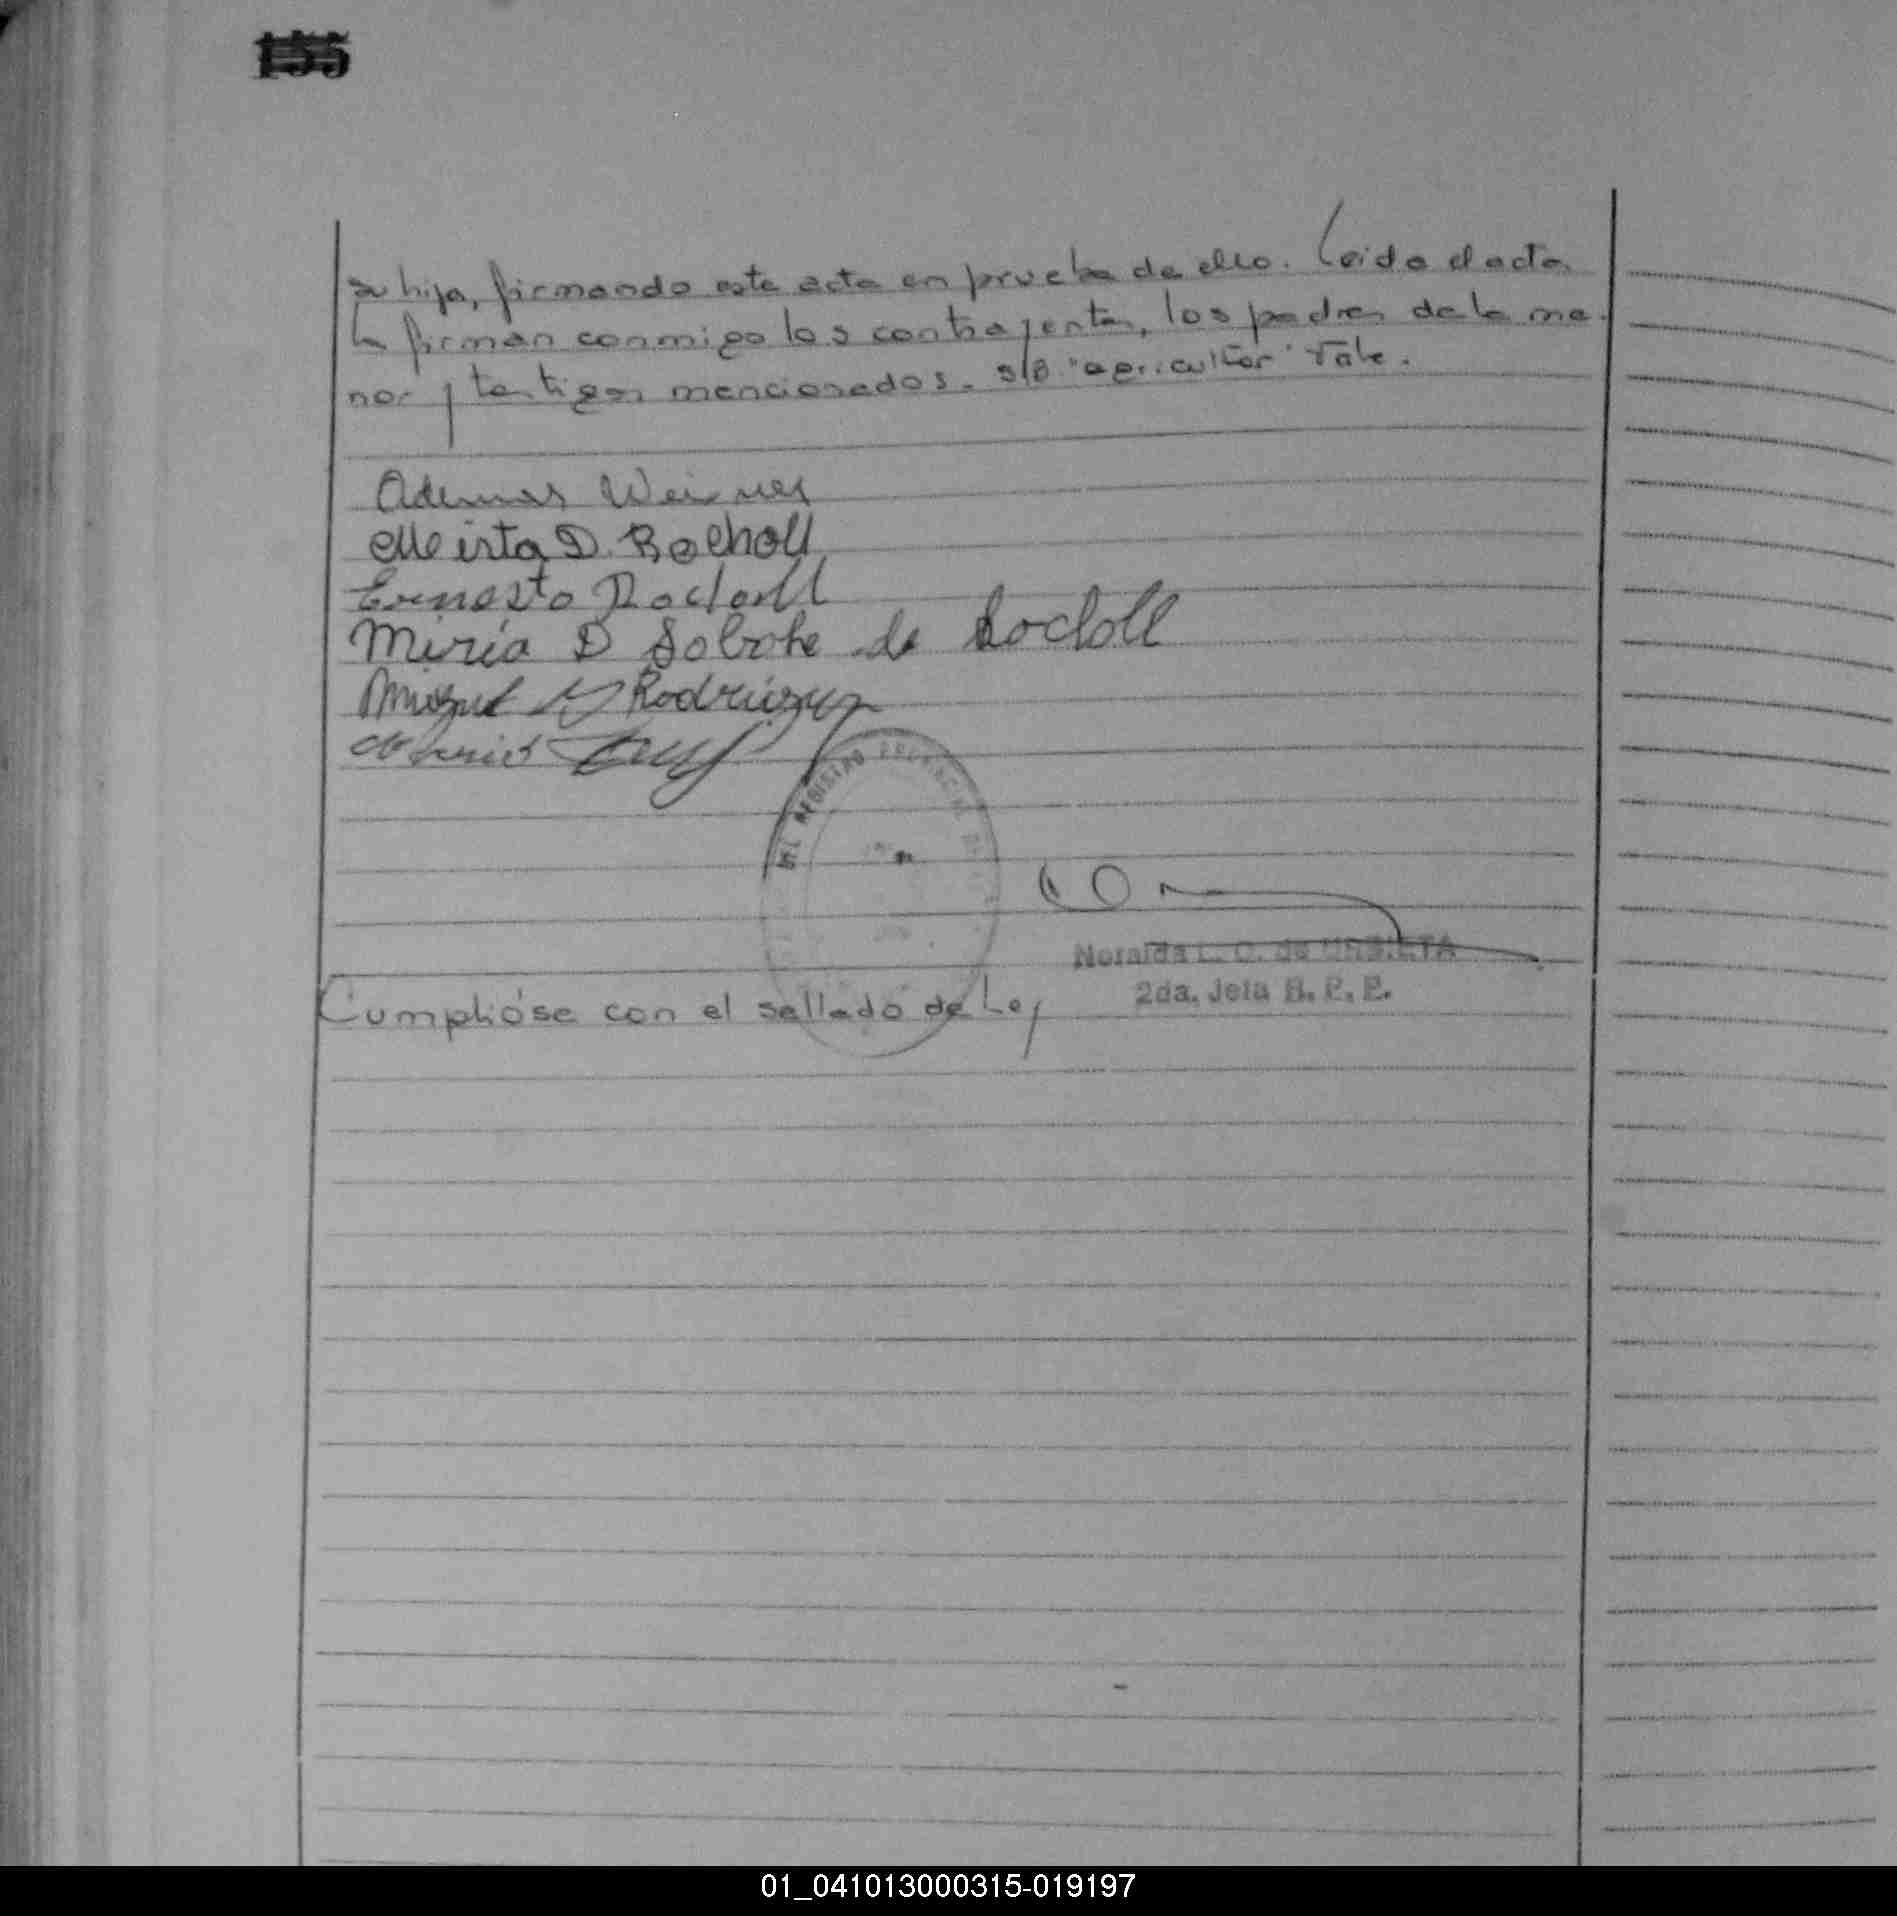 155
su hija, firmando este acta en prueba de ello. Leida el acta
la firman conmigo los contrayentes, los padres de la me-
nor y testigos mencionados. s/b "agricultor" Vale.
Ademar Weirner
Meirta D. Rocholl
Ernesto Rocholl
Miria D de Rocholl
Miguel Rodriguez
REGISTRO PROVINCIAL
Noraida L. C. de URBIETA
2da. Jefa R. P. P.
Cumplióse con el sellado de Ley
01_041013000315-019197